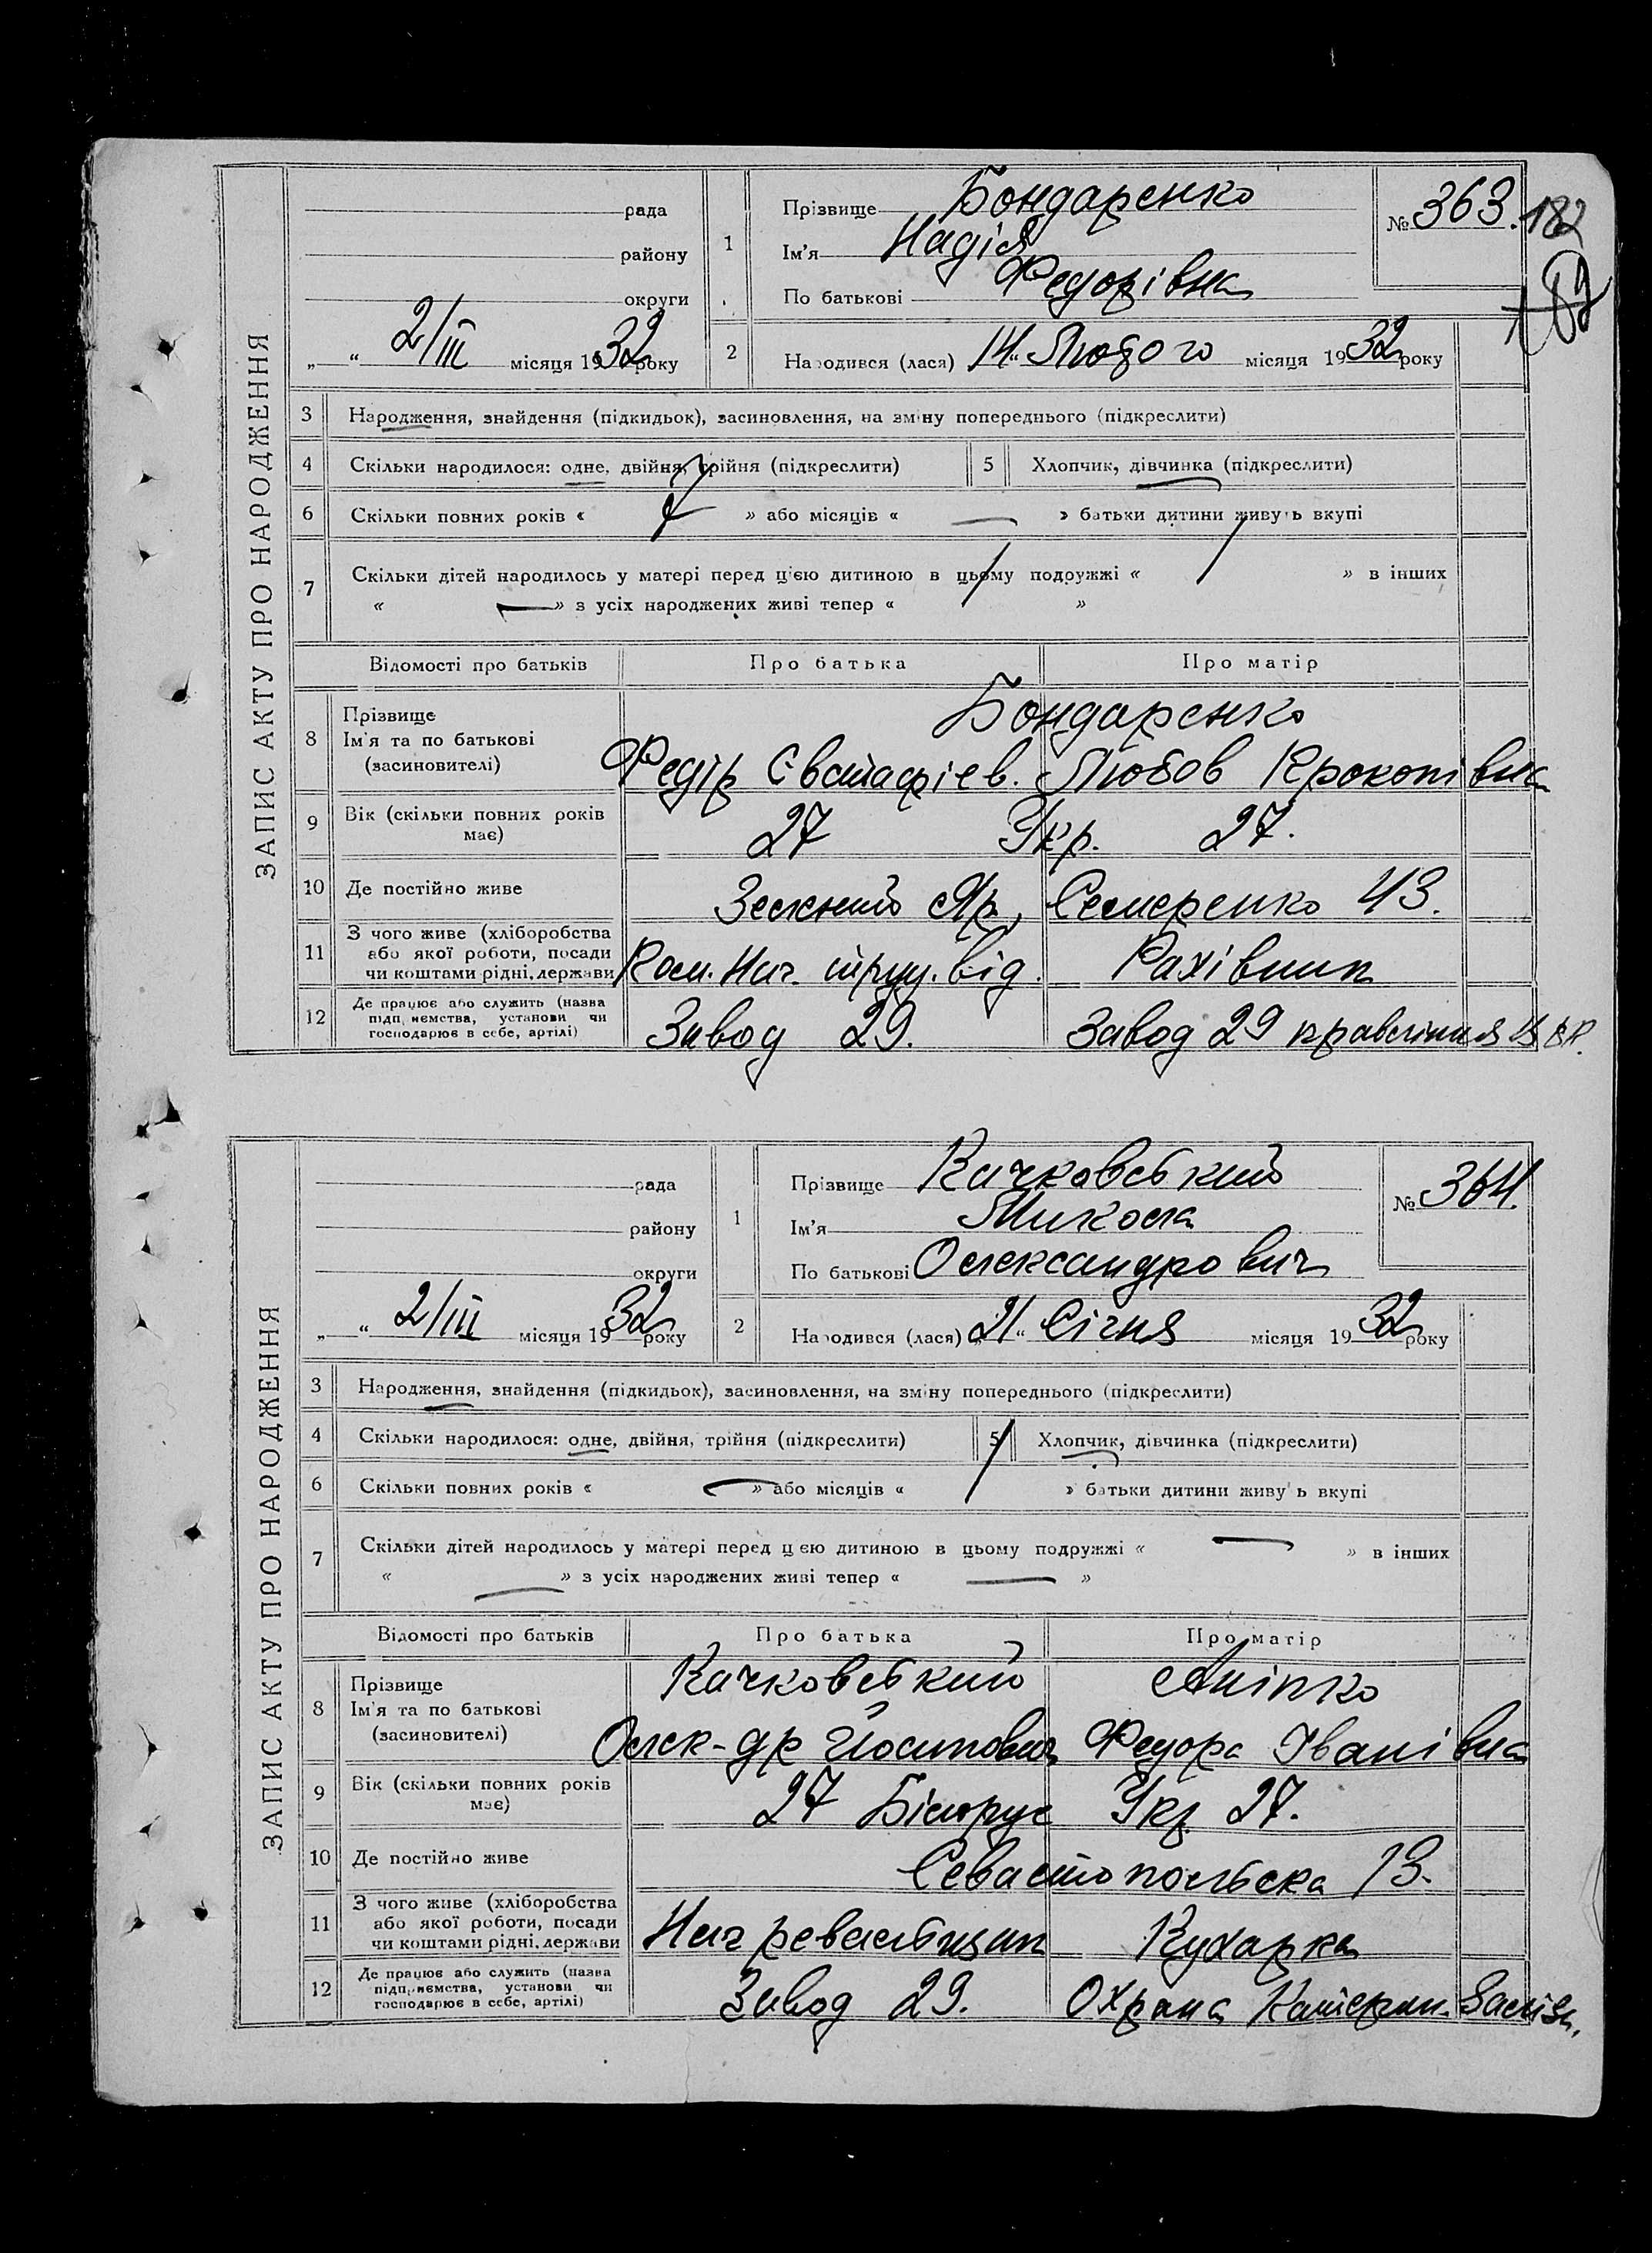 ЗАПИС АКТУ ПРО НАРОДЖЕННЯ
рада
району
округи
„ “ 2/ІІІ місяця 1932 року
1
Прізвище Бондаренко
Ім'я Надія
По батькові Федорівна
№ 363.
182
182
2 Народився (лася) 14 “ Лютого місяця 1932 року
3 Народження, знайдення (підкидьок), засиновлення, на зміну попереднього (підкреслити)
4 Скільки народилося: одне, двійня, трійня (підкреслити) 5 Хлопчик, дівчинка (підкреслити)
6 Скільки повних років « » або місяців « — » батьки дитини живуть вкупі
7 Скільки дітей народилось у матері перед цією дитиною в цьому подружжі « » в інших
« — » з усіх народжених живі тепер « »
Відомості про батьків Про батька Про матір
8 Прізвище
Ім'я та по батькові
(засиновителі)
Бондаренко
Федір Євстафіев. Любов Прокопівна
9 Вік (скільки повних років має) 27 Укр. 27.
10 Де постійно живе Зелений Яр, Семеренко 43.
11 З чого живе (хліборобства або якої роботи, посади чи коштами рідні, держави Пом. Нач. від. Рахівник
12 Де працює або служить (назва підприємства, установи чи господарює в себе, артілі) Завод 29. Завод 29 правління
ЗАПИС АКТУ ПРО НАРОДЖЕННЯ
рада
району
округи
„ “ 2/ІІІ місяця 1932 року
1
Прізвище Качковський
Ім'я Микола
По батькові Олександрович
№ 364.
2 Народився (лася) „21“ Січня місяця 1932 року
3 Народження, знайдення (підкидьок), засиновлення, на зміну попереднього (підкреслити)
4 Скільки народилося: одне, двійня, трійня (підкреслити) 5 Хлопчик, дівчинка (підкреслити)
6 Скільки повних років « — » або місяців « » батьки дитини живуть вкупі
7 Скільки дітей народилось у матері перед цією дитиною в цьому подружжі « — » в інших
« — » з усіх народжених живі тепер « — »
Відомості про батьків Про батька Про матір
8 Прізвище
Ім'я та по батькові
(засиновителі)
Качковський Аніпко
Олек-др Йосипович Федора Іванівна
9 Вік (скільки повних років має) 27 Білорус Укр. 27.
10 Де постійно живе Севастопольска 13.
11 З чого живе (хліборобства або якої роботи, посади чи коштами рідні, держави Нач Кухарка
12 Де працює або служить (назва підприємства, установи чи господарює в себе, артілі) Завод 29. Охрана Катерин. Залізн.